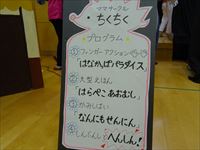 ママサークル
ちくちく
プログラム
①フィンガーアクション
「はなかっぱパラダイス」
②大型えほん
「はらぺこあおむし」
③かみしばい
「なんにもせんにん」
④しんぶんしとへんしん!